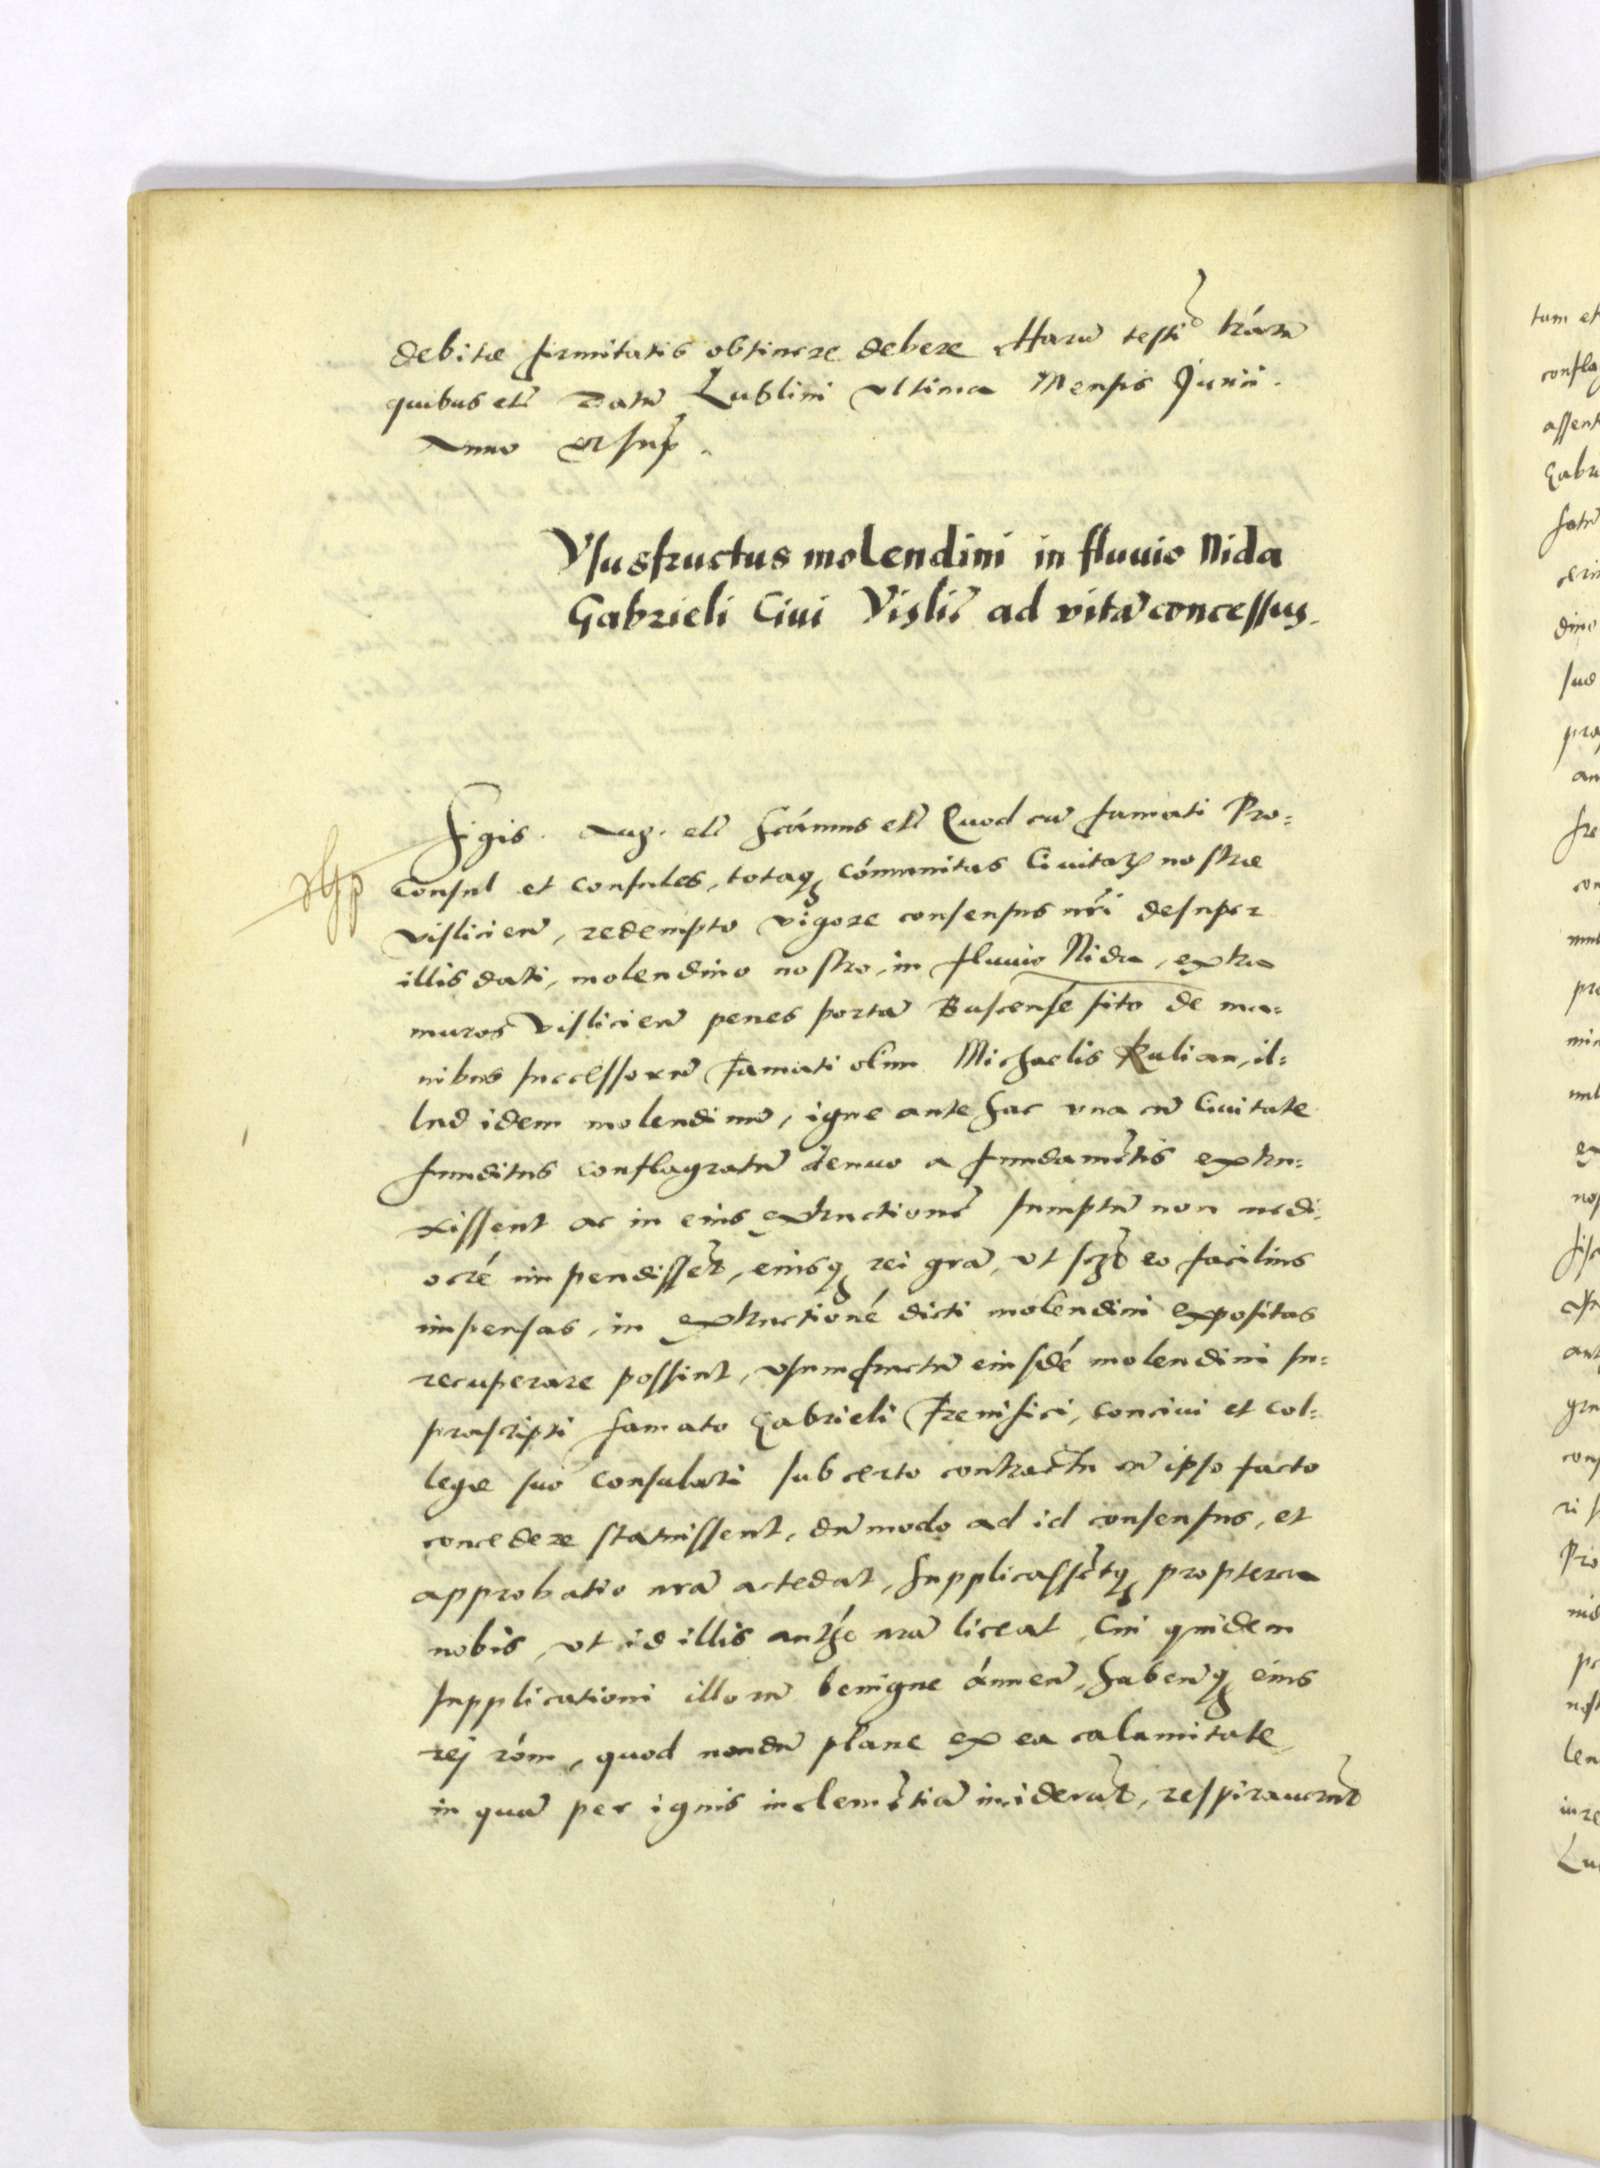 debitæ firmitatis obtinere debere Harū testiō lrárū
quibus etc̃ Datū Lublini vltima Mensis Junii.
Anno vt sup̃.
Vsusfructus molendini in fluuio Nida
Gabrieli Ciui Vislic̃ ad vitā concessus.
Sigis. Aug. etc̃ Scámus etc̃ Quod cū famati Pro=
consul et consules, totaq; cómunitas Ciuitatis nostræ
vislicien̄, redempto vigore consensus nr̃i desuper
illis dati, molendino nostro, in fluuio Nida, extra
muros Vislicien̄ penes portā Buscensē sito de ma=
nibus successorū famati olim Michaelis Kulian, il=
lud idem molendinū, igne ante hac vna cū Ciuitate
funditus conflagratū denuo a fundamētis extru=
xissent ac in eius extructionē sumptū non medi=
ocrē impendissēt, eiusq; rei grā, vt scʒ eo facilius
impensas, in extructionē dicti molendini expositas
recuperare possint, vsumfructū eiusdē molendini su=
prascripti famato Gabrieli Frenifici, conciui et col=
legæ suo consulari sub certo contractu cū ipso facto
concedere statuissent, dūmodo ad id consensus, et
approbatio nrā accedat, supplicassētq; propterea
nobis, vt id illis autʒē nrā liceat, Cui quidem
supplicationi illorū benigne ánnuen̄, habenq; eius
rej róm, quod nondū plane ex ea calamitate
in quā per ignis inclemētiā inciderūt, respirauerūt